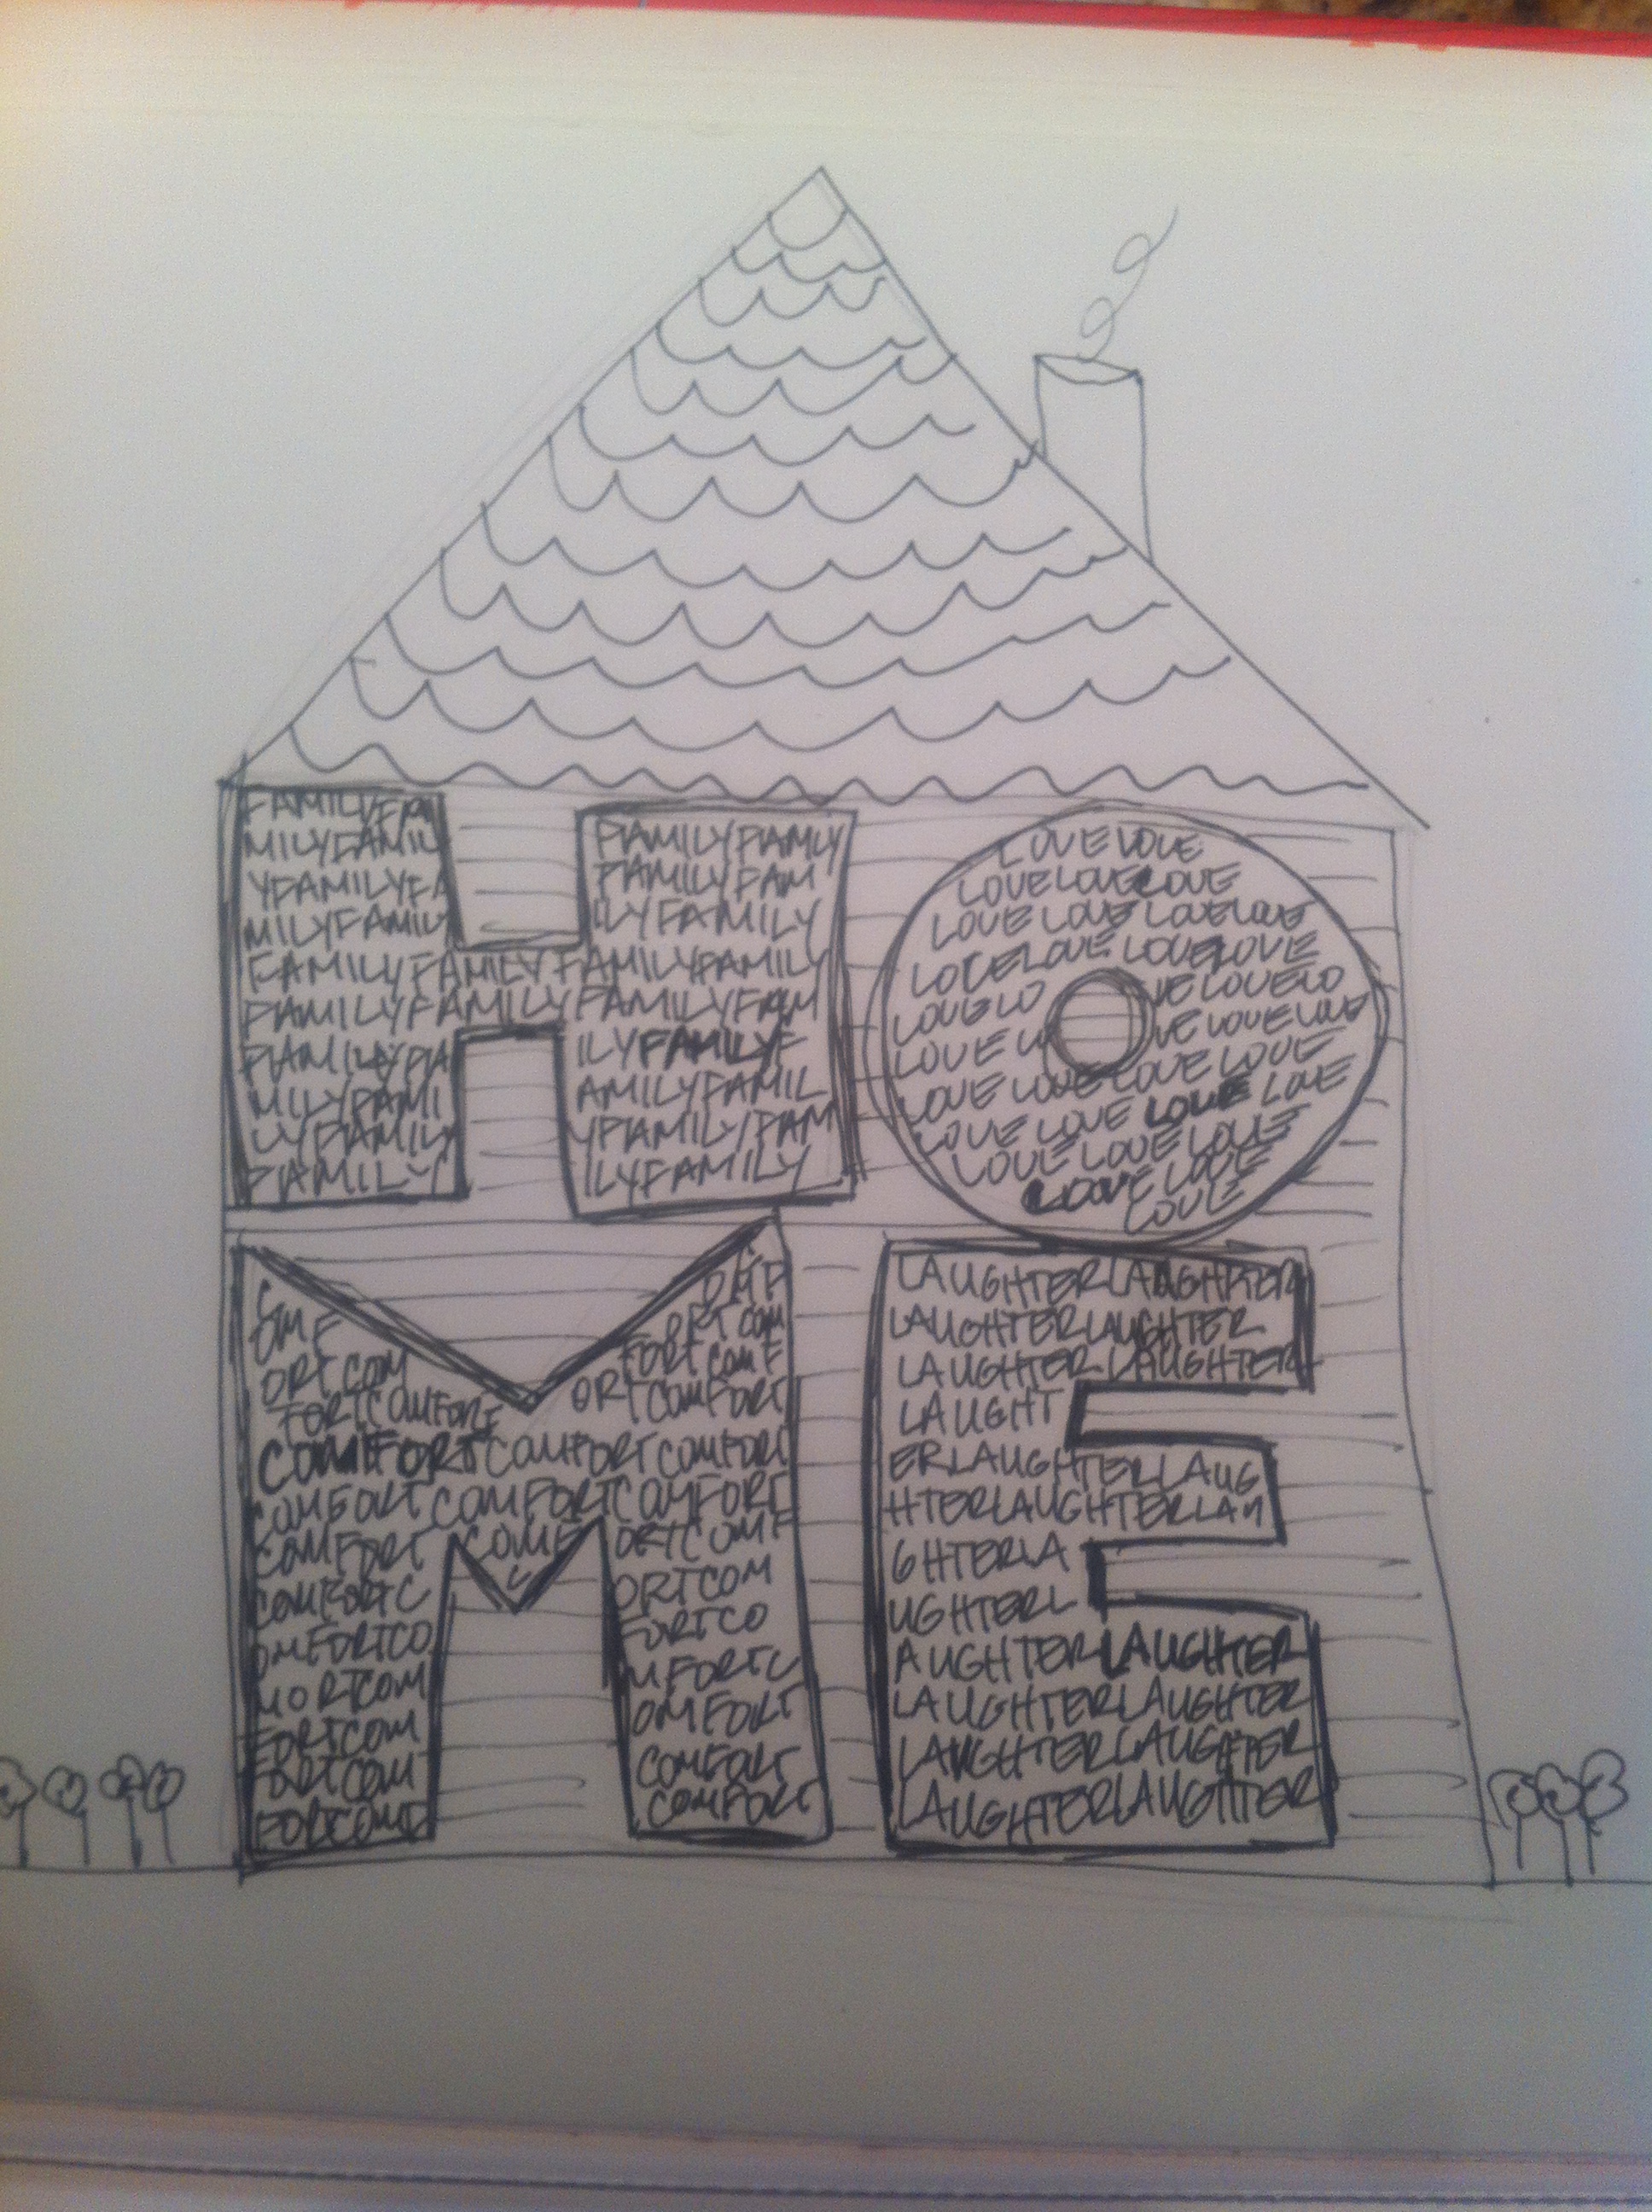 HOME
FAMILYFAM
MILYFAMIL
YFAMILYFA
MILYFAMILY
FAMILYFAMILYFAMILYFAMILY
FAMILYFAMILYFAMILYFAM
FAMILYFA
MILYFAMI
LYFAMILY
FAMILY
FAMILYFAMILY
FAMILYFAM
ILYFAMILY
ILYFAMILYF
AMILYFAMIL
YFAMILYFAM
ILYFAMILY
LOVELOVE
LOVELOVELOVE
LOVE LOVE LOVELOVE
LOVELOVE LOVELOVE
LOVELO VELOVELO
LOVE LO VE LOVELOVE
LOVE LOVE LOVE LOVE
LOVE LOVE LOVE LOVE
LOVE LOVE LOVE
LOVE LOVE
LOVE
OMF
ORTCOM
FORTCOMFORT
ORTCOM
FORTCOMF
ORTCOMFORT
COMFORTCOMFORTCOMFORT
COMFORTCOMFORTCOMFORT
COMFORT COMF ORTCOMF
COMFORTC
OMFORTCO
MORTCOM
FORTCOM
FORTCOM
FORTCOMF
ORTCOM
FORTCO
MFORTC
OMFORT
COMFORT
COMFORT
LAUGHTERLAUGHTER
LAUGHTERLAUGHTER
LAUGHTERLAUGHTER
LAUGHT
ERLAUGHTERLAUG
HTERLAUGHTERLAU
GHTERLA
UGHTERL
AUGHTERLAUGHTER
LAUGHTERLAUGHTER
LAUGHTERLAUGHTER
LAUGHTERLAUGHTER